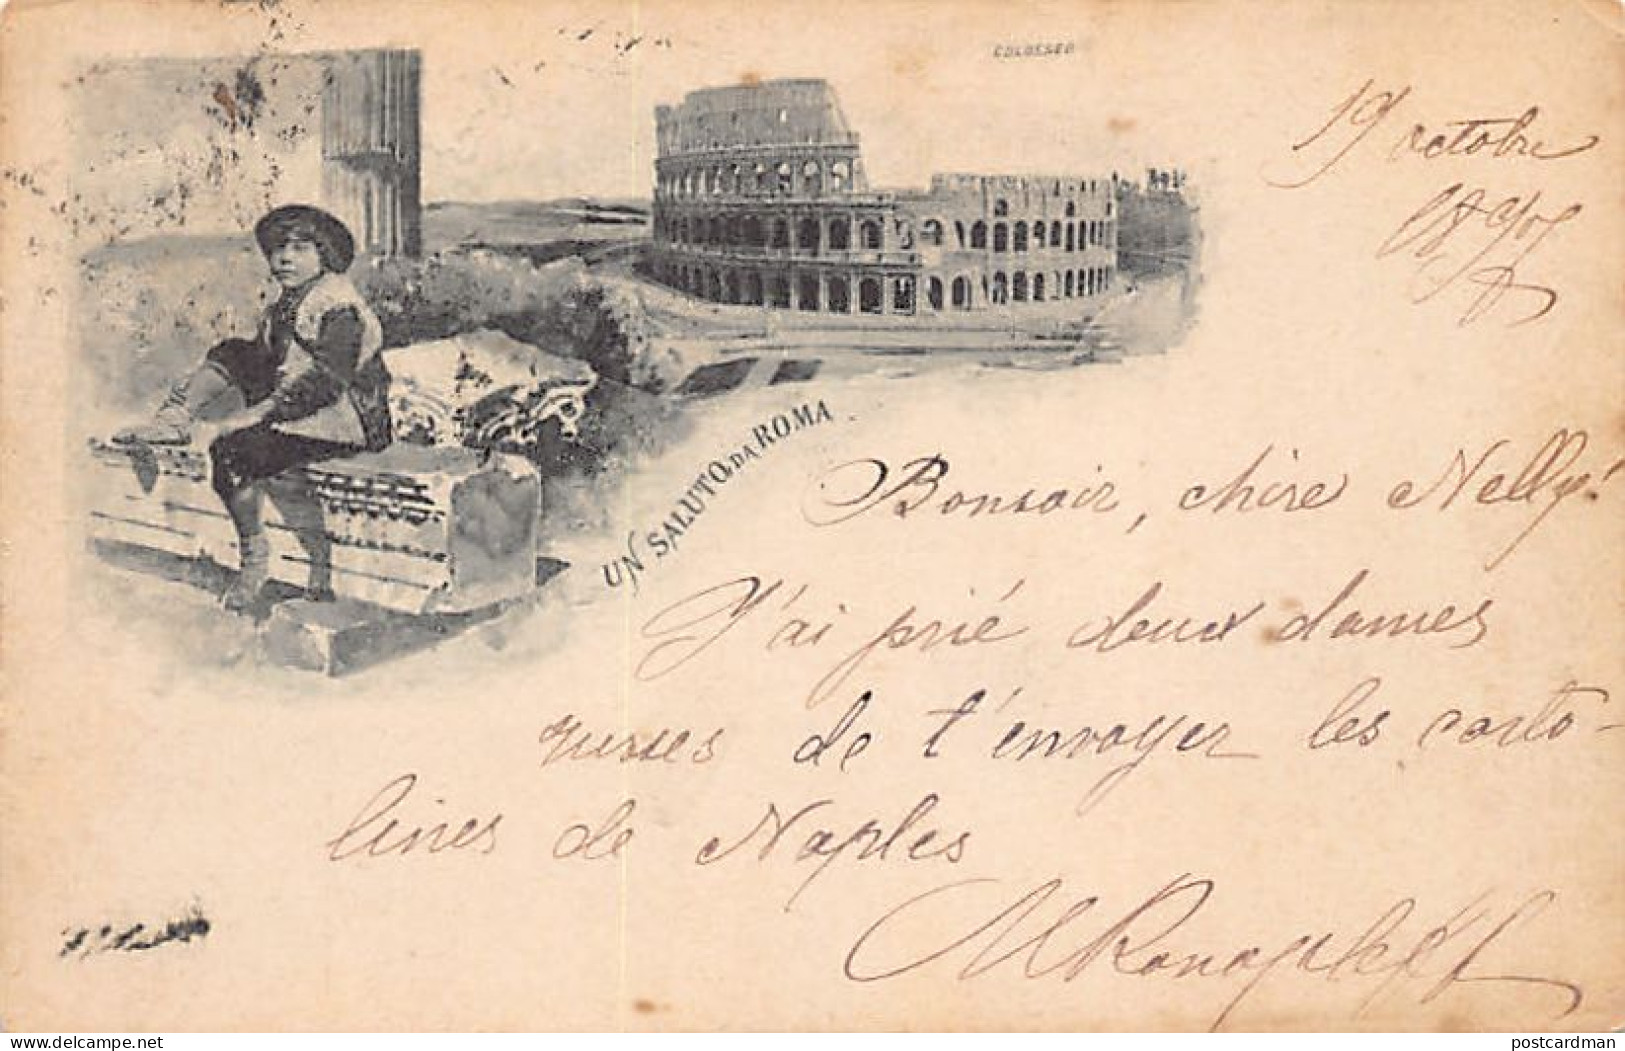 COLOSSEO
19 octobre
UN SALUTO DA ROMA
Bonsoir, chire Nelly!
J'ai prié deux dames
russes de t'envoyer les carto-
lines de Naples
delcampe.net
postcardman